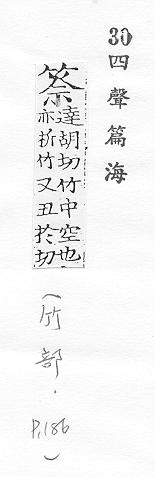 30 四聲篇海
筡
達胡切竹中空也
亦折竹又丑於切
(竹部.P.186)